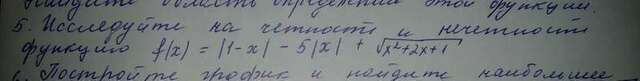 Найдите область определения этой функции.
5. Исследуйте на четность и нечетность
функцию f(x) = |1-x| - 5|x| + √x²+2x+1
Постройте график и найдите наибольшее